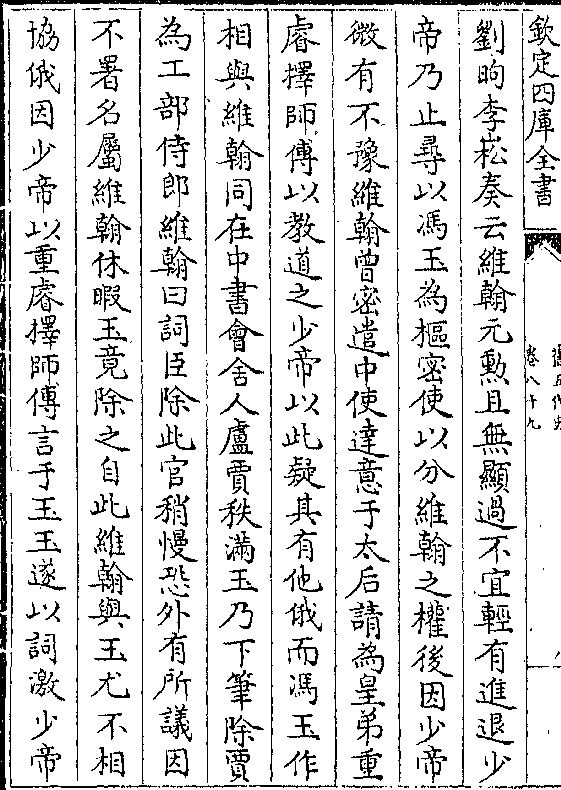 欽定四庫全書
舊五代史
卷八十九
劉昫李崧奏云維翰元勲且無顯過不宜輕有進退少
帝乃止尋以馮玉為樞密使以分維翰之權後因少帝
微有不豫維翰曾密遣中使達意于太后請為皇弟重
睿擇師傅以教道之少帝以此疑其有他俄而馮玉作
相與維翰同在中書會舍人盧賈秩滿玉乃下筆除賈
為工部侍郎維翰曰詞臣除此官稍慢恐外有所議因
不署名屬維翰休暇玉竟除之自此維翰與玉尤不相
協俄因少帝以重睿擇師傅言于玉玉遂以詞激少帝